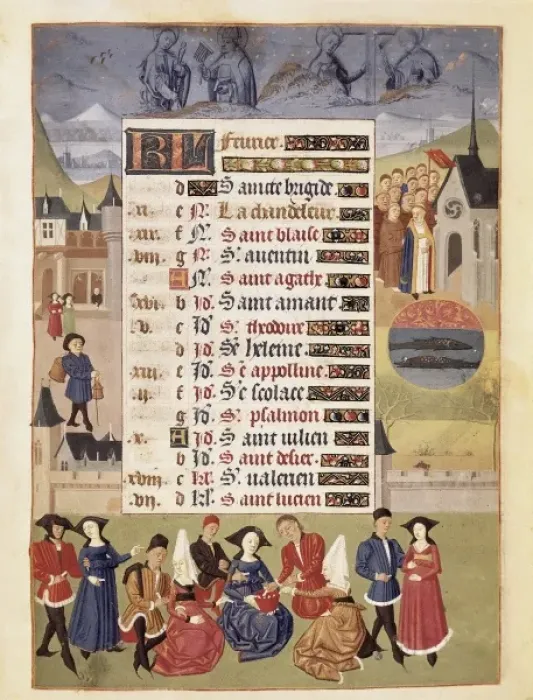 KL Feurier.
d Saincte brigide.
xi. e N. La chandeleur.
xix. f N. Saint blaise
viii. g N. St. auentin
A N. Saint agathe
xvi. b Id. Saint amant
v. c Id. St. theodore
d Id. Ste heleine.
xiii. e Id. Ste appolline.
ii. f Id. Ste scolace
g Id. St. psalmon
x. A Id. Saint iulien
b Id. Saint desier.
xviii. c kl. St. ualerien
vii. d kl. Saint lucien